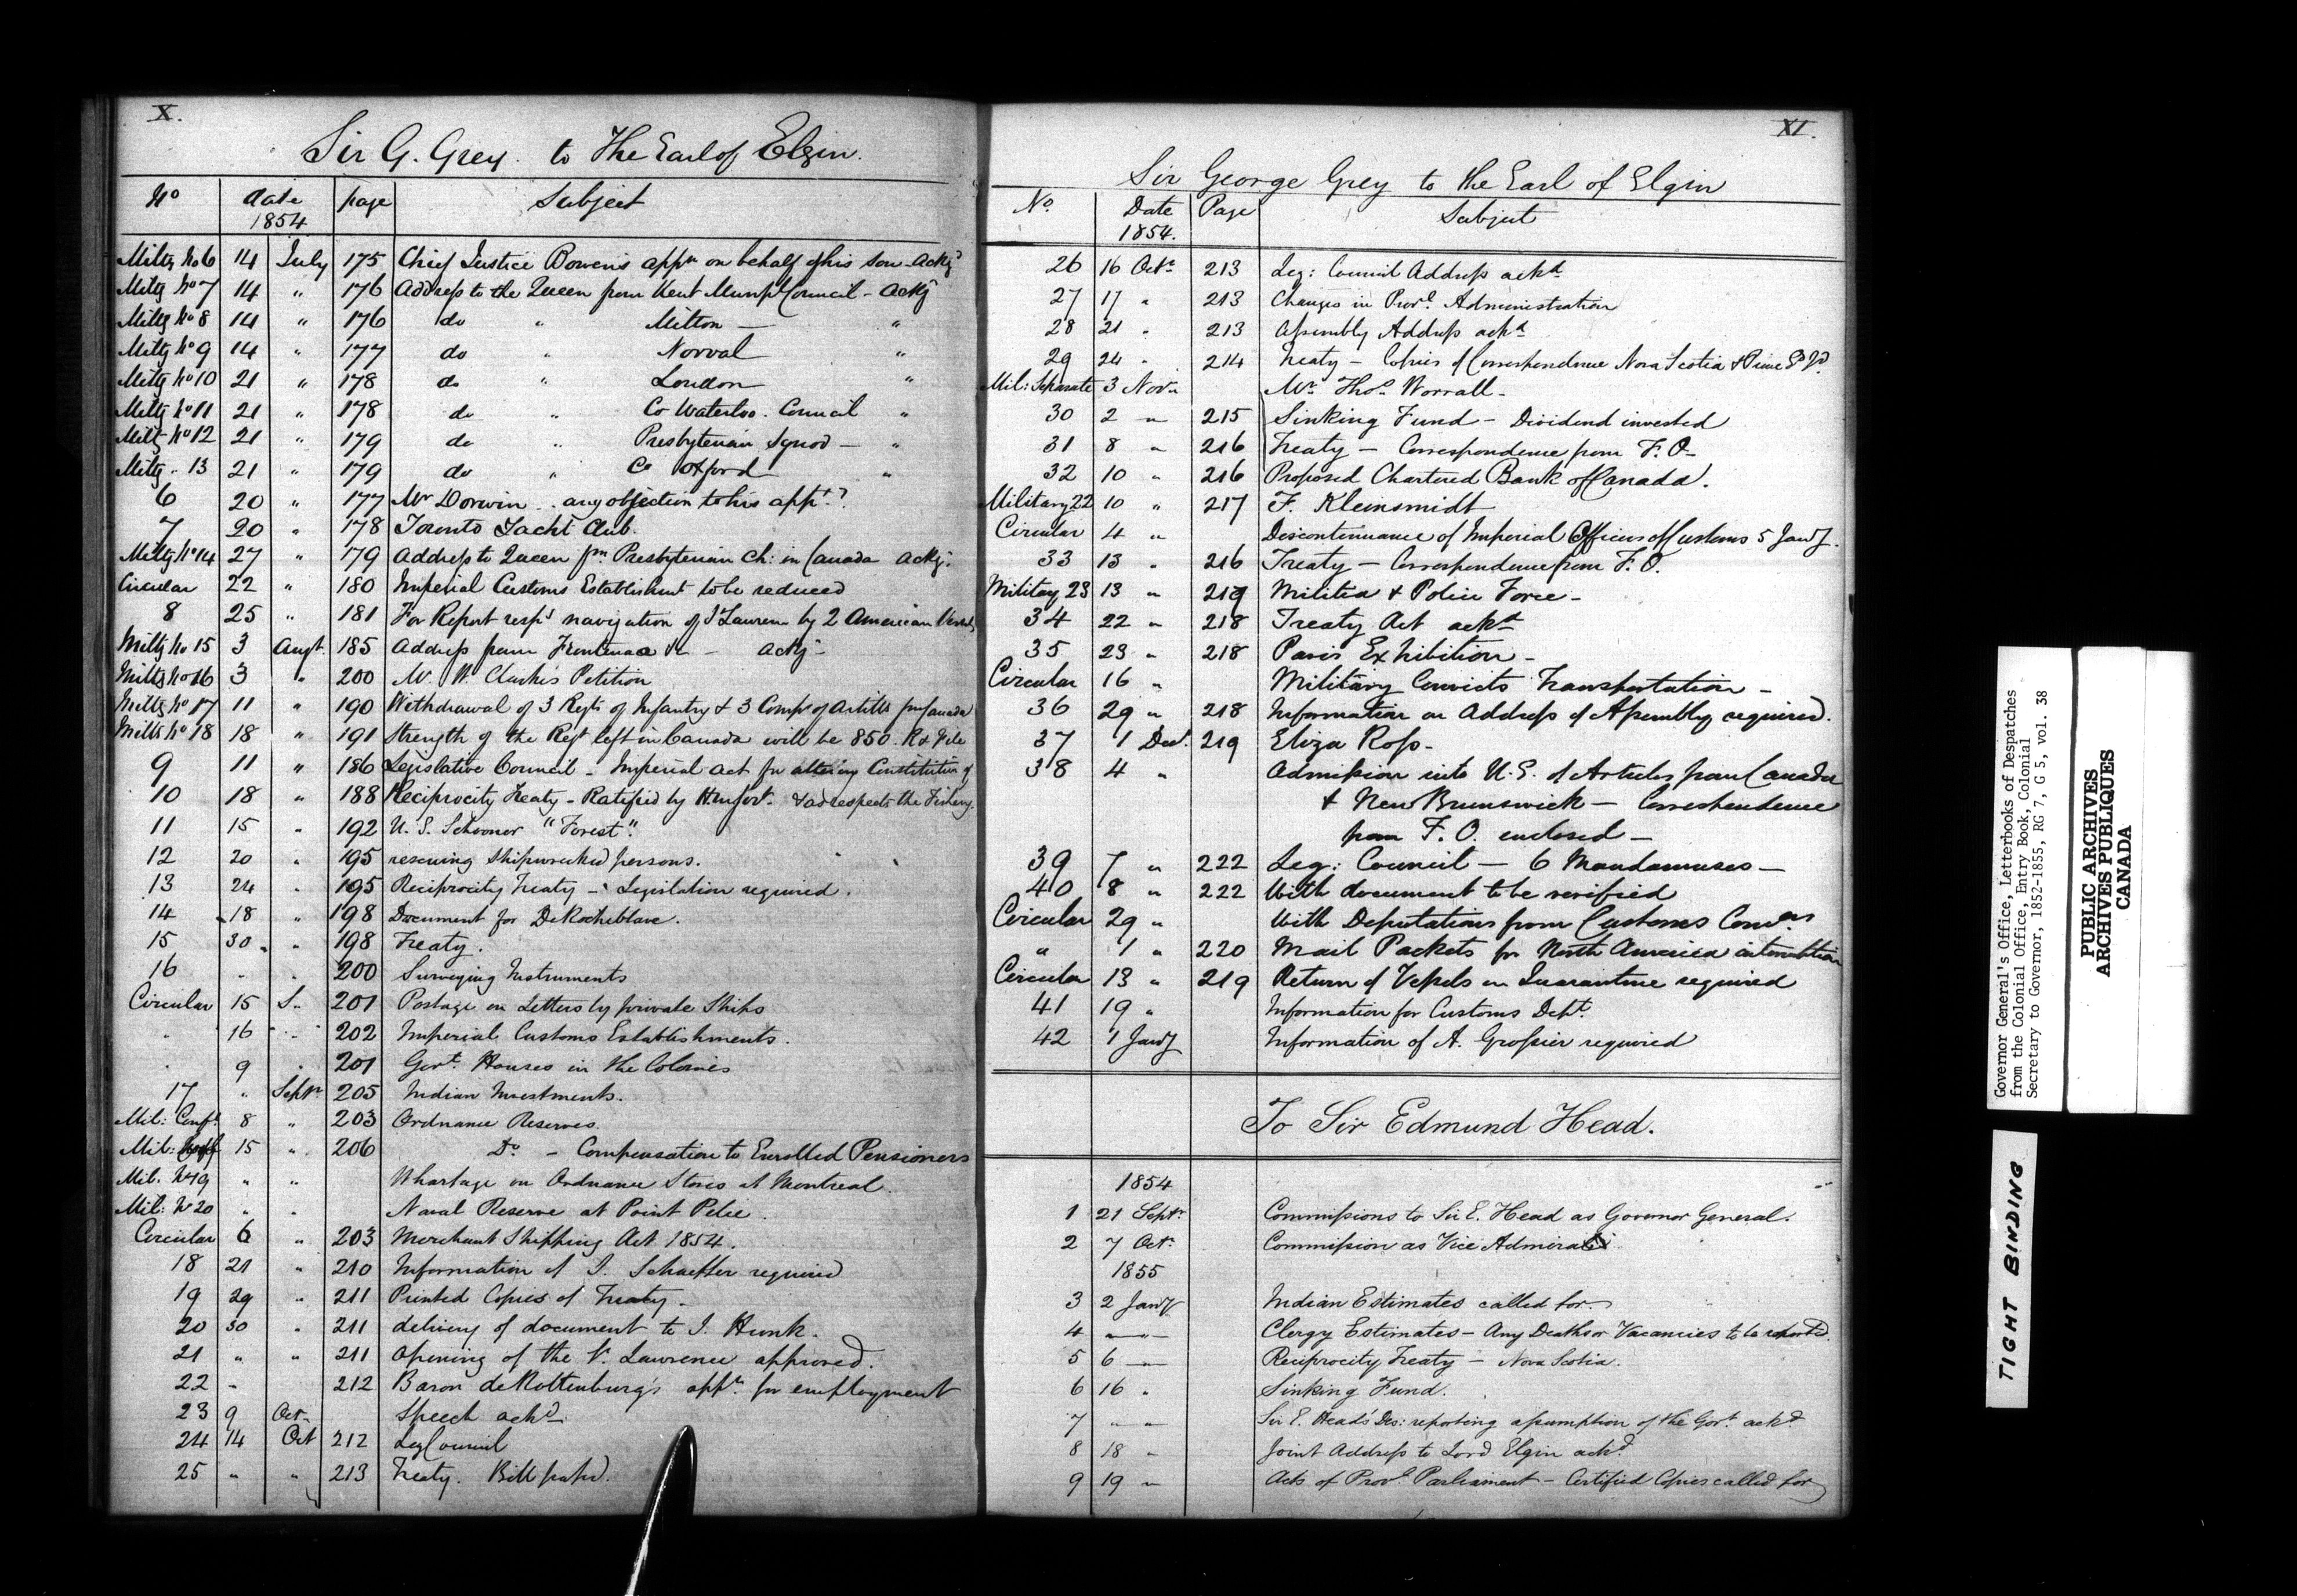 X.
Sir G. Grey to The Earl of Elgin.
No date page Subject
1854
Milty No 6 14 July 175 Chief Justice Bowen's appn on behalf of his son - Ackg
Milty No 7 14 " 176 Address to the Queen from Kent Munpl Council - Ackg
Milty No 8 14 " 176 do " Milton — "
Milty No 9 14 " 177 do " Norval "
Milty No 10 21 " 178 do " London "
Milty No 11 21 " 178 do " Co Waterloo. Council "
Milty No 12 21 " 179 do " Presbyterian Synod — "
Milty " 13 21 " 179 do " Co Oxford "
6 20 " 177 Mr Dorwin . any objection to his appt?
7 20 " 178 Toronto Yacht Club
Milty No 14 27 " 179 Address to Queen fm Presbyterian Ch: in Canada ackg.
Circular 22 " 180 Imperial Customs Establishment to be reduced
8 25 " 181 For Report respg navigation of St Lawren by 2 American Vessels
Milty No 15 3 Augt. 185 Address from Frontenac - ackg -
Milty No 16 3 " 200 W. Clarke's Petition
Milty No 17 11 " 190 Withdrawal of 3 Regts of Infantry & 3 Comps of Artills fm Canada
Milty No 18 18 " 191 Strength of the Regt left in Canada will be 850 R & File
9 11 " 186 Legislative Council - Imperial Act for altering Constitution of
10 18 " 188 Reciprocity Treaty - Ratified by & as respects the Fishery.
11 15 " 192 U. S. Schooner "Forest".
12 20 " 195 rescuing Shipwrecked persons.
13 24 " 195 Reciprocity Treaty - Legislation required.
14 18 " 198 Document for DeRocheblave.
15 30 " 198 Treaty.
16 " " 200 Surveying Instruments
Circular 15 S. 201 Postage on Letters by private Ships
" 16 " 202 Imperial Customs Establishments.
" 9 " 201 Govt. Houses in the Colonies
17 " Septr 205 Indian Investments.
Mil: Conf. 8 " 203 Ordnance Reserves.
Mil: 15 " 206 Do - Compensation to Enrolled Pensioners
Mil. No 19 " " Wharfage on Ordnance Stores at Montreal.
Mil: No 20 " " Naval Reserve at Point Pelee.
Circular 6 " 203 Merchant Shipping Act 1854.
18 21 " 210 Information of J. Schaeffer required
19 29 " 211 Printed Copies of Treaty.
20 30 " 211 delivery of document to J. Hunk.
21 " " 211 Opening of the St. Lawrence approved.
22 " 212 Baron de Rottenburg's appn. for employment
23 9 Oct- Speech ackd
24 14 Oct 212 Leg Council
25 " " 213 Treaty. Bill passd.
XI.
Sir George Grey to the Earl of Elgin
No. Date Page Subject
1854.
26 16 Octr 213 Leg: Council Address ackd
27 17 " 213 Changes in Provl. Administration
28 21 " 213 Assembly Address ackd
29 24 " 214 Treaty - Copies of Correspondence Nova Scotia & Prince Ed Id.
Mil: Separate 3 Novr Mr. Thos. Worrall -
30 2 " 215 Sinking Fund - Dividend invested
31 8 " 216 Treaty - Correspondence from F. O-
32 10 " 216 Proposed Chartered Bank of Canada.
Military 22 10 " 217 F. Kleinsmidt
Circular 4 " Discontinuance of Imperial Officers of Customs 5 Jany.
33 13 " 216 Treaty - Correspondence from F. O.
Military 23 13 " 219 Militia & Police Force -
34 22 " 218 Treaty Act ackd
35 23 " 218 Paris Exhibition -
Circular 16 " Military Convicts Transportation -
36 29 " 218 Information on Address of Assembly required.
37 1 Decr. 219 Eliza Ross -
38 4 " Admission into U. S. of Articles from Canada
& New Brunswick - Correspondence
from F. O. enclosed -
39 7 " 222 Leg: Council - 6 Mandamuses -
40 8 " 222 With document to be verified
Circular 29 " With Deputations from Customs Comrs
" 1 " 220 Mail Packets for North America
Circular 13 " 219 Return of Vessels in Quarantine required
41 19 " Information for Customs Dept.
42 1 Jany Information of A. Grossier required
To Sir Edmund Head.
1854
1 21 Septr. Commissions to Sir E. Head as Governor General.
2 7 Octr. Commission as Vice Admiral
1855
3 2 Jany Indian Estimates called for -
4 — " — Clergy Estimates - Any Deaths or Vacancies to be reported.
5 6 — " Reciprocity Treaty - Nova Scotia.
6 16 " Sinking Fund.
7 " " Sir E. Head's Des: reporting assumption of the Govt. ackd
8 18 " Joint Address to Lord Elgin ackd.
9 19 " Acts of Provl. Parliament - Certified Copies called for
Governor General's Office, Letterbooks of Despatches
from the Colonial Office, Entry Book, Colonial
Secretary to Governor, 1852-1855, RG 7, G 5, vol. 38
PUBLIC ARCHIVES
ARCHIVES PUBLIQUES
CANADA
TIGHT BINDING